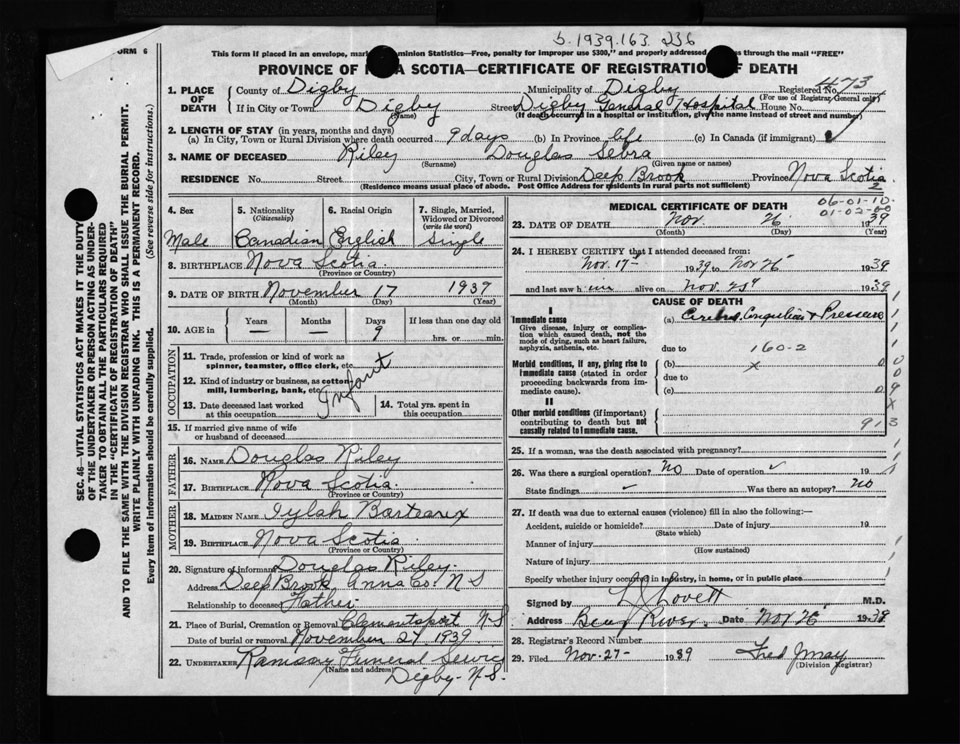 5.1939.163 236
FORM 6
This form if placed in an envelope, mar Dominion Statistics—Free, penalty for improper use $300," and properly addressed es through the mail "FREE"
PROVINCE OF NOVA SCOTIA—CERTIFICATE OF REGISTRATION OF DEATH
1. PLACE OF DEATH
County of Digby Municipality of Digby Registered No. 473
(For use of Registrar General only)
If in City or Town Digby Street Digby General Hospital House No.
(Name) (If death occurred in a hospital or institution, give the name instead of street and number)
2. LENGTH OF STAY (in years, months and days)
(a) In City, Town or Rural Division where death occurred 9 days (b) In Province life (c) In Canada (if immigrant)
3. NAME OF DECEASED Riley Douglas Sebra
(Surname) (Given name or names)
RESIDENCE No. Street City, Town or Rural Division Deep Brook Province Nova Scotia
(Residence means usual place of abode. Post Office Address for residents in rural parts not sufficient)
2
4. Sex Male
5. Nationality (Citizenship) Canadian
6. Racial Origin English
7. Single, Married, Widowed or Divorced (write the word) Single
8. BIRTHPLACE Nova Scotia
(Province or Country)
9. DATE OF BIRTH November 17 1939
(Month) (Day) (Year)
10. AGE in Years — Months — Days 9 If less than one day old
hrs. or min.
OCCUPATION
11. Trade, profession or kind of work as spinner, teamster, office clerk, etc.
12. Kind of industry or business, as cotton-mill, lumbering, bank, etc.
Infant
13. Date deceased last worked at this occupation
14. Total yrs. spent in this occupation
15. If married give name of wife or husband of deceased
FATHER
16. NAME Douglas Riley
17. BIRTHPLACE Nova Scotia
(Province or Country)
MOTHER
18. MAIDEN NAME Barteaux
19. BIRTHPLACE Nova Scotia
(Province or Country)
20. Signature of informant Douglas Riley
Address Deep Brook Anna Co. N S
Relationship to deceased Father
21. Place of Burial, Cremation or Removal Clementsport N S
Date of burial or removal November 27 1939
22. UNDERTAKER Ramsay Funeral Service
(Name and address)
Digby N.S.
MEDICAL CERTIFICATE OF DEATH
06-01-10
01-02-00
23. DATE OF DEATH Nov. 26 1939
(Month) (Day) (Year)
24. I HEREBY CERTIFY that I attended deceased from:
Nov. 17th 1939 to Nov 26th 1939
and last saw him alive on Nov. 1939
CAUSE OF DEATH
I
Immediate cause
Give disease, injury or complication which caused death, not the mode of dying, such as heart failure, asphyxia, asthenia, etc.
(a) Pressure
due to 160-2
Morbid conditions, if any, giving rise to immediate cause (stated in order proceeding backwards from immediate cause).
(b) x
due to
(c)
II
Other morbid conditions (if important) contributing to death but not causally related to immediate cause.
913
25. If a woman, was the death associated with pregnancy?
26. Was there a surgical operation? No Date of operation ✓ 19
State findings ✓ Was there an autopsy? No
27. If death was due to external causes (violence) fill in also the following:—
Accident, suicide or homicide? Date of injury 19
(State which)
Manner of injury
(How sustained)
Nature of injury
Specify whether injury occurred in industry, in home, or in public place
Signed by Lovett M.D.
Address Bear River. Date Nov 26 1939
28. Registrar's Record Number
29. Filed Nov-27- 1939 Fred Jmay
(Division Registrar)
SEC. 46—VITAL STATISTICS ACT MAKES IT THE DUTY
OF THE UNDERTAKER OR PERSON ACTING AS UNDER-
TAKER TO OBTAIN ALL THE PARTICULARS REQUIRED
IN THE "CERTIFICATE OF REGISTRATION OF DEATH"
AND TO FILE THE SAME WITH THE DIVISION REGISTRAR WHO SHALL ISSUE THE BURIAL PERMIT.
WRITE PLAINLY WITH UNFADING INK. THIS IS A PERMANENT RECORD.
Every item of information should be carefully supplied. (See reverse side for instructions.)